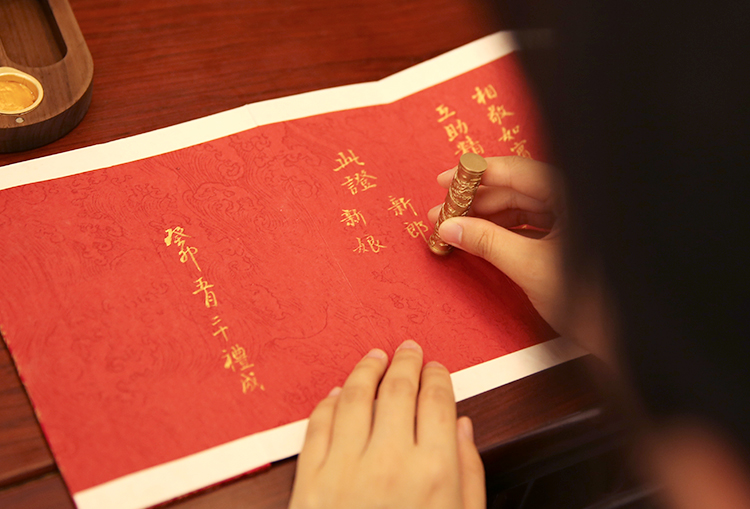 相敬如賓
互助精
此證
新郎
新娘
癸卯五月二十禮成